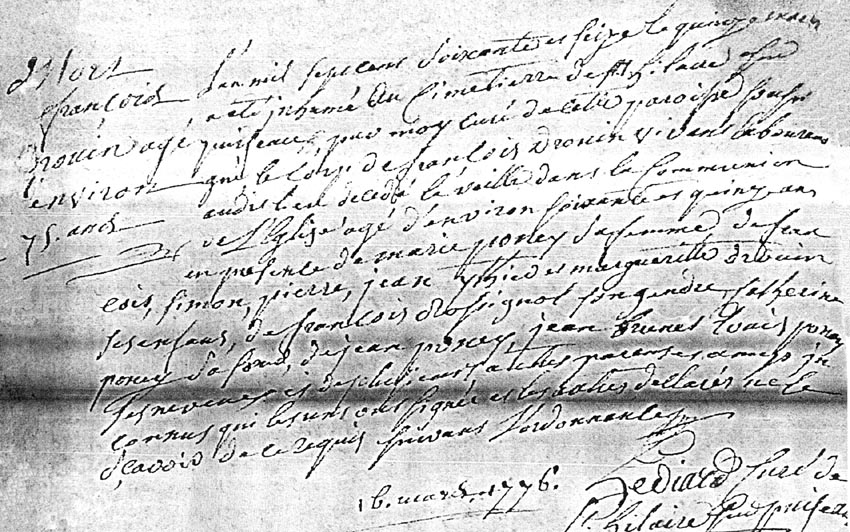 Mort
françois
Drouin agé
d'environ
75. ans
L'an mil sept cent soixante et seize le quinze mars
a eté inhumé au Cimetierre de St hilaire sur
puiseaux, par moy curé de cette paroisse sousi
gné le corps de françois Drouin vivant laboureur
audit lieu decedé la veille dans la Communion
de L'Eglise agé d'environ soixante et quinze ans
en presence de marie poncy sa femme, de fran
cois, simon, pierre, jean et marguerite drouin
ses enfans, de françois Rossignol son gendre, Catherine
poncy sa sœur, de jean poncy, jean brunet Louis poncy
ses neveux et de plusieurs autres parens et amis in
connus qui les uns ont signés et les autres declarés ne le
sçavoir de ce requis suivant L'ordonnance
16. mars 1776. Lediard Curé de
St hilaire sur puiseaux